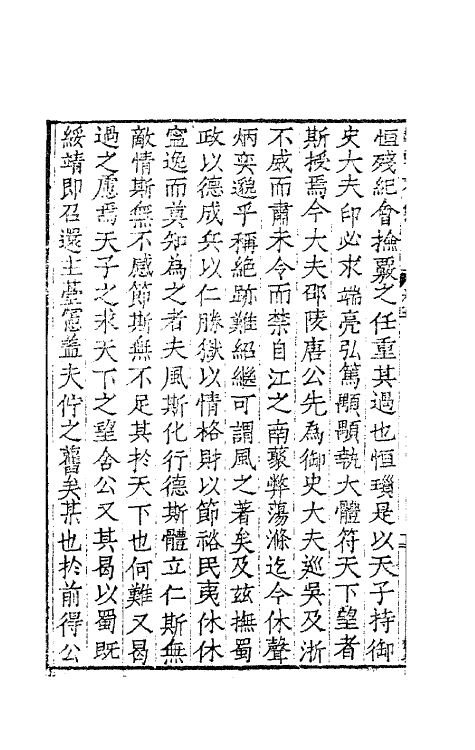 恒殘紀會掄覈之任重其過也恒瑣是以天子持御
史大夫印必求端亮弘篤顒顒執大體符天下望者
斯授焉今大夫邵陵唐公先為御史大夫巡吳及浙
不威而肅未令而禁自江之南藂弊蕩滌迄今休聲
炳奕邈乎稱絶跡難紹繼可謂風之著矣及兹撫蜀
政以德成兵以仁勝獄以情格財以節裕民夷休休
寍逸而莫知為之者夫風斯化行德斯體立仁斯無
敵情斯無不感節斯無不足其扵天下也何難又曷
過之慮焉天子之求天下之望舍公又其曷以蜀旣
綏靖即召還主臺憲蓋夫佇之舊矣某也扵前得公